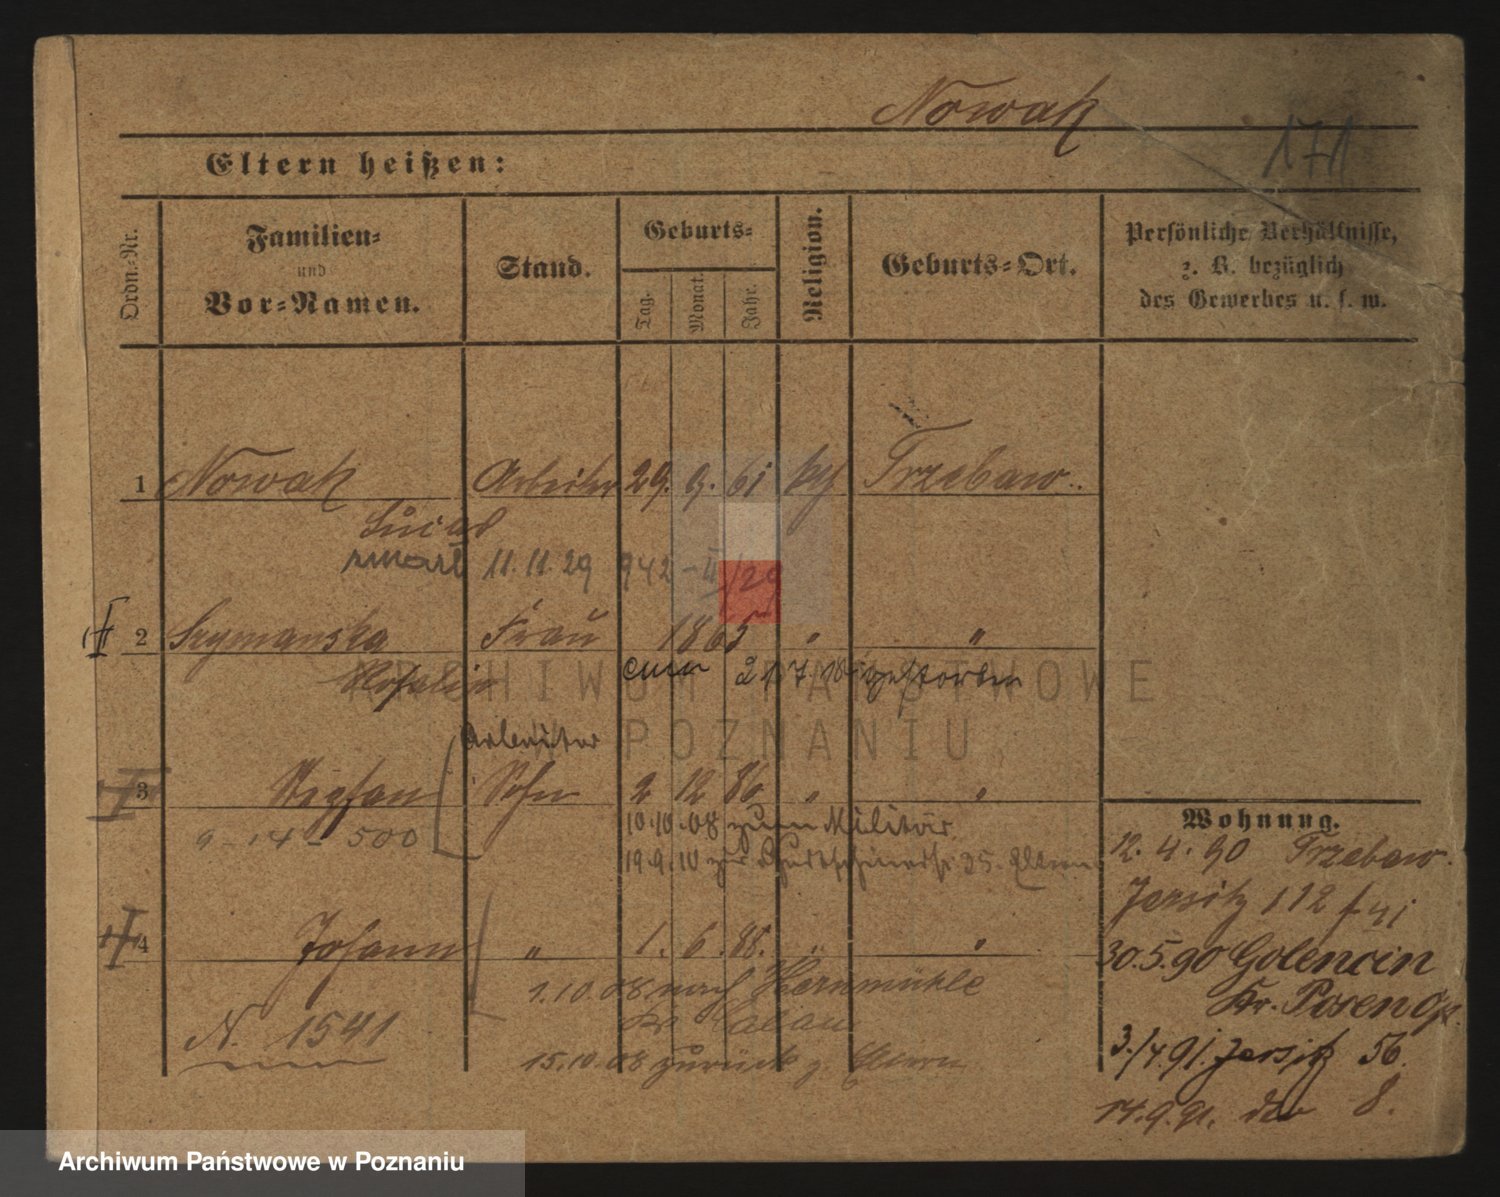 Nowak
171
Eltern heißen:
Ordn.-Nr.
Familien-
und
Vor-Namen.
Stand.
Geburts-
Tag.
Monat.
Jahr.
Religion.
Geburts-Ort.
Persönliche Verhältnisse,
z. B. bezüglich
des Gewerbes u. s. w.
1 Nowak Arbeiter 29. 9. 61 kth Trzebaw.
zmarł 11.11.29 942-II/29
2 Szymanska Frau 1865 " "
Rosalie am 21.7.18 gestorben
Arbeiter
3 Stephan Sohn 2 12 86 " "
10.10.08 zum Militär
9-14-500
19.9.10 zur 35. Eltern
4 Johann " 1. 6. 88. " "
1.10.08 nach
N. 1541
15.10.08 zurück z. Eltern
Wohnung.
12.4.90 Trzebaw.
Jersitz 112
30.5.90 Golencin
Kr. Posen
3./4.91. Jersitz 56.
14.9.91. 8.
ARCHIWUM PAŃSTWOWE
W POZNANIU
Archiwum Państwowe w Poznaniu